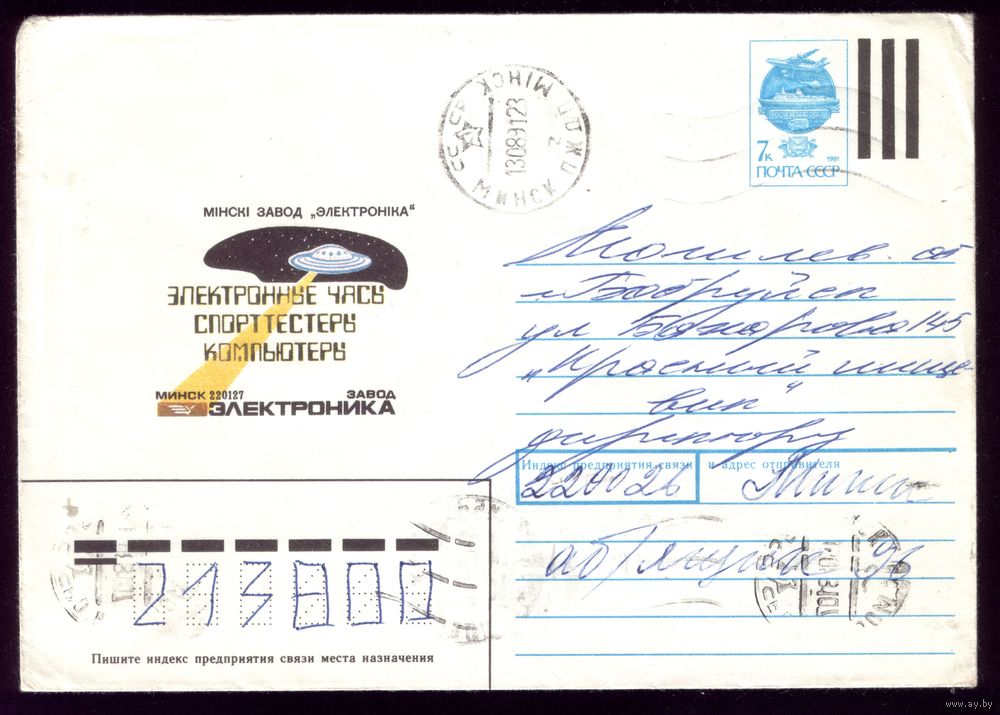 МІНСКІ ЗАВОД „ЭЛЕКТРОНІКА“
ЭЛЕКТРОННЫЕ ЧАСЫ
СПОРТТЕСТЕРЫ
КОМПЬЮТЕРЫ
МИНСК 220127 ЗАВОД
ЭЛЕКТРОНИКА
СССР МІНСК
130891 23
МИНСК ПЖДП 2
7к 1991
ПОЧТА СССР
Могилев. об
г. Бобруйск
ул 145
„Красный пище-
вик“
директору
Индекс предприятия связи и адрес отправителя
220026 Минск
213800
Пишите индекс предприятия связи места назначения
www.ay.by